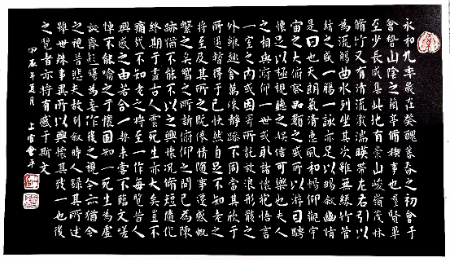 永和九年歲在癸醜暮春之初會于
會稽山陰之蘭亭脩禊事也羣賢畢
至少長咸集此地有崇山峻嶺茂林
脩竹又有清流激湍暎帶左右引以
為流觴曲水列坐其次雖無絲竹管
絃之盛一觴一詠亦足以暢敘幽情
是日也天朗氣清惠風和暢仰觀宇
宙之大俯察品類之盛所以遊目騁
懷足以極視聽之娛信可樂也夫人
之相與俯仰一世或取諸懷抱悟言
一室之內或因寄所託放浪形骸之
外雖趣舍萬殊靜躁不同當其欣于
所遇暫得于己快然自足不知老之
將至及其所之既倦情隨事遷感慨
繫之矣向之所欣俯仰之間已為陳
跡猶不能不以之興懷況脩短隨化
終期于盡古人云死生亦大矣豈不
痛哉不知老之將至一作每覽昔人
興感之由若合一契未嘗不臨文嗟
悼不能喻之于懷固知一死生為虛
誕齊彭殤為妄作後之視今亦猶今
之視昔悲夫故列敘時人錄其所述
雖世殊事異所以興懷其致一也後
之覽者亦將有感于斯文
甲辰年夏月